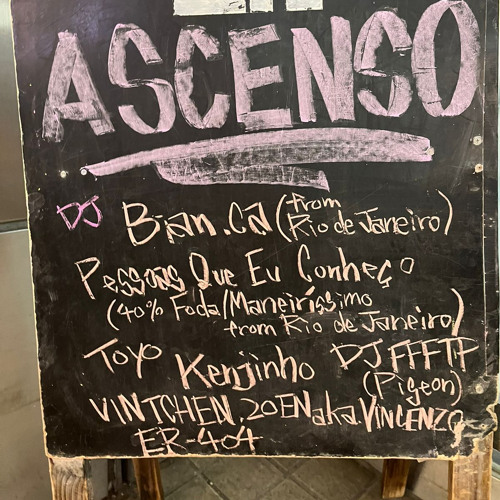 ASCENSO
DJ Bian.ca (from
Rio de Janeiro)
Pessoas Que Eu Conheço
(40% Foda/Maneiríssimo
from Rio de Janeiro)
Toyo Kenjinho DJ FFFTP
(Pigeon)
VINTCHEN.20EN aka.VINCENZO
ER-404